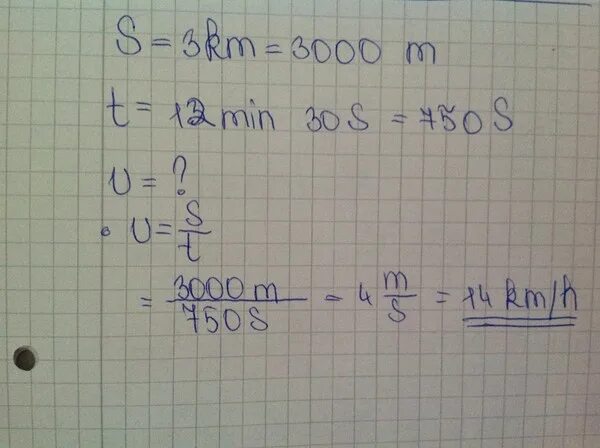 S = 3km = 3000 m
t = 12min 30S = 750S
v = ?
• v = S/t
= 3000 m/750S = 4 m/S = 14 km/h